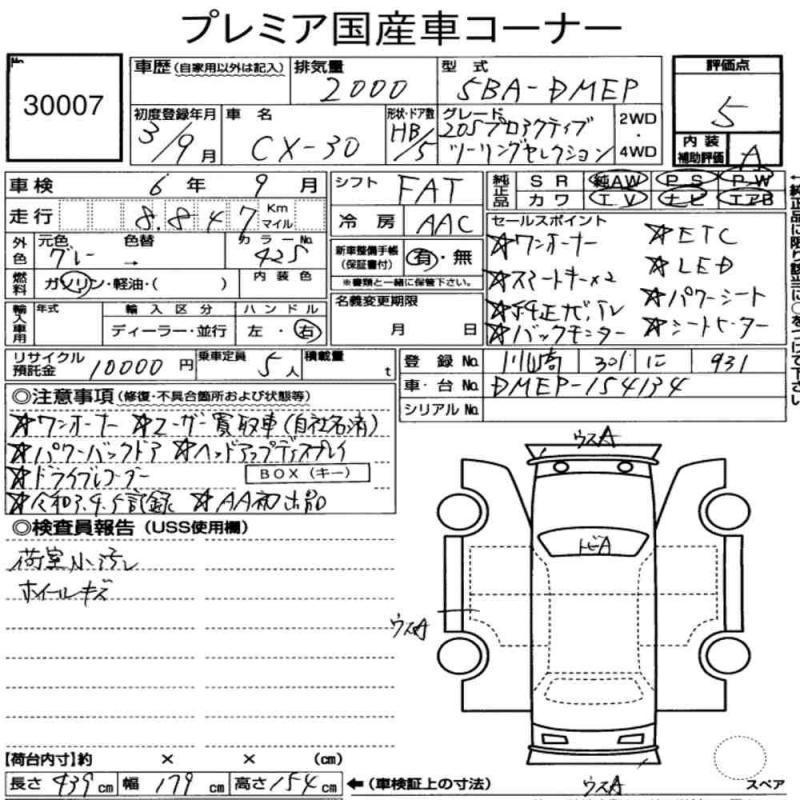 プレミア国産車コーナー
No. 30007
車歴 (自家用以外は記入)
排気量 2000
型式 5BA-DMEP
評価点 5
初度登録年月 3/9月
車名 CX-30
形状・ドア数 HB/5
グレード 20Sプロアクティブ ツーリングセレクション
2WD・4WD
内装補助評価 A
車検 6年 9月
シフト FAT
純正品 SR 純AW PS PW
カワ エV ナビ エアB
走行 8.847 Km マイル
冷房 AAC
セールスポイント
外色 元色 グレー → 色替 カラーNo. 42S
新車整備手帳(保証書付) 有・無
※書類と一緒に保管下さい。
☆ワンオーナー ☆ETC
☆スマートキー×2 ☆LED
☆純正ナビTV ☆パワーシート
☆バックモニター ☆シートヒーター
燃料 ガソリン・軽油・( )
内装色
名義変更期限 月 日
輸入車用 年式 輸入区分 ディーラー・並行 ハンドル 左・右
リサイクル預託金 10000円
乗車定員 5人
積載量 t
登録No. 川崎 301 に 931
車台No. DMEP-154134
シリアルNo.
←純正品に限り該当に○をつけて下さい
◎注意事項 (修復・不具合箇所および状態等)
☆ワンオーナー ☆ユーザー買取車(自社名済)
☆パワーバックドア ☆ヘッドアップディスプレイ
☆ドライブレコーダー BOX(キー)
☆令和3.9.5記録 ☆AA初出品
◎検査員報告 (USS使用欄)
荷室小汚レ
ホイールキズ
ウスA
トビA
ウスA
ウスA
スペア
【荷台内寸】約 × × (cm)
長さ 439cm 幅 179cm 高さ 154cm ←(車検証上の寸法)